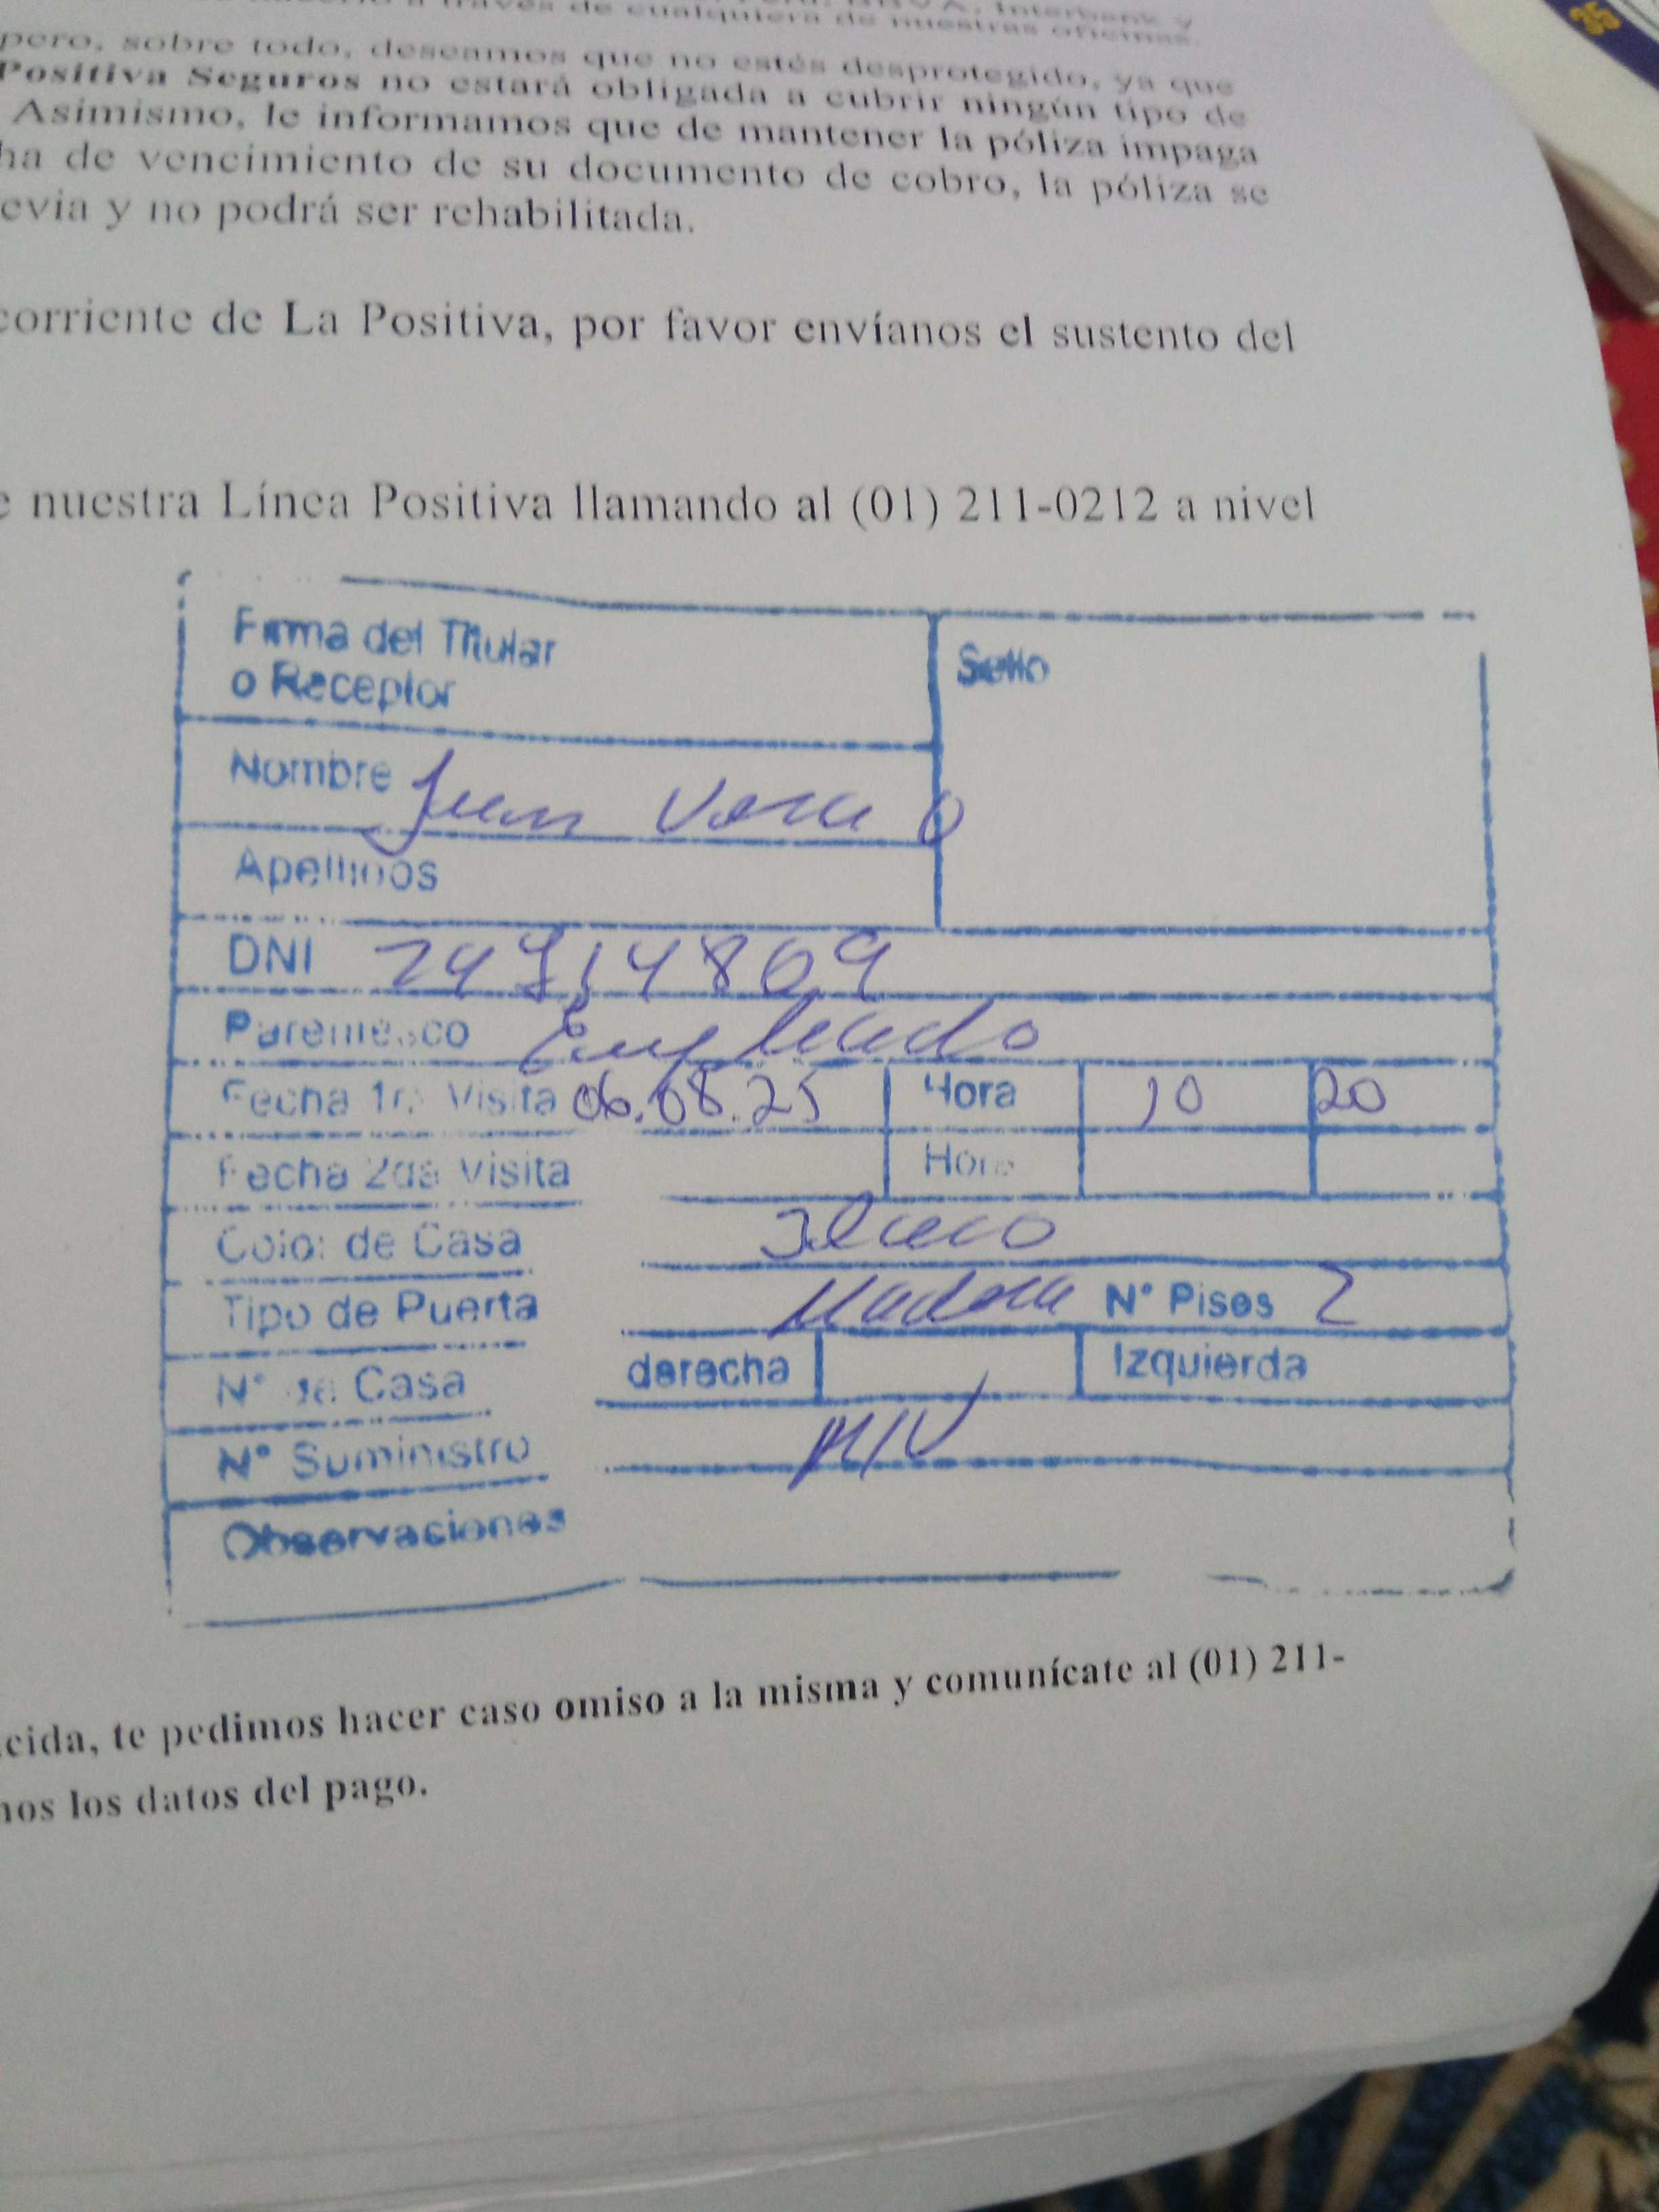 de cualquiera de nuestras oficinas.
pero, sobre todo, deseamos que no estés desprotegido, ya que
Positiva Seguros no estará obligada a cubrir ningún tipo de
Asimismo, le informamos que de mantener la póliza impaga
ha de vencimiento de su documento de cobro, la póliza se
evia y no podrá ser rehabilitada.
corriente de La Positiva, por favor envíanos el sustento del
e nuestra Línea Positiva llamando al (01) 211-0212 a nivel
Firma del Titular
o Receptor
Sello
Nombre Juan
Apellidos
DNI
Parentesco Empleado
Fecha 1ra Visita 06.08.25 Hora 10 20
Fecha 2da Visita Hora
Color de Casa
Tipo de Puerta Madera N° Pisos 2
N° de Casa derecha Izquierda
N° Suministro
Observaciones
cida, te pedimos hacer caso omiso a la misma y comunícate al (01) 211-
nos los datos del pago.